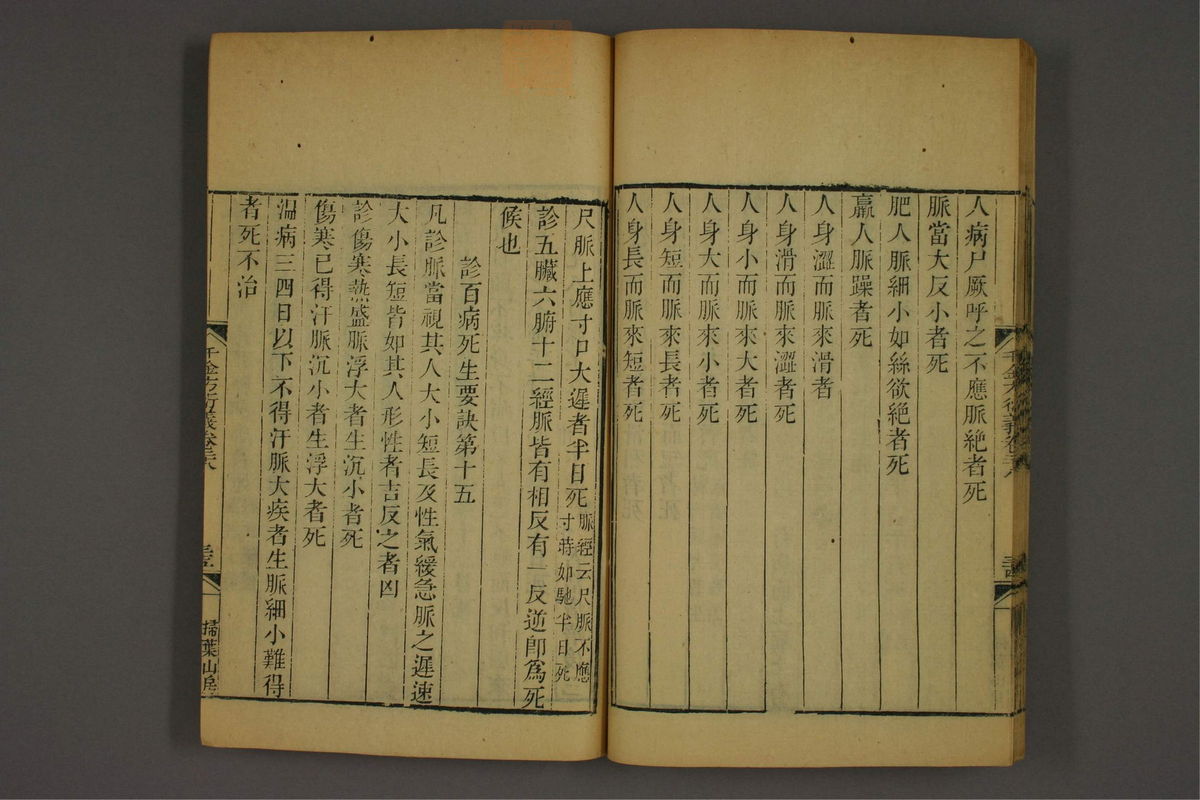 人病尸厥呼之不應脈絕者死
脈當大反小者死
肥人脈細小如絲欲絕者死
羸人脈躁者死
人身澀而脈來滑者
人身滑而脈來澀者死
人身小而脈來大者死
人身大而脈來小者死
人身短而脈來長者死
人身長而脈來短者死
尺脈上應寸口大遲者半日死脈經云尺脈不應寸時如馳半日死
診五臟六腑十二經脈皆有相反有一反逆卽爲死
候也
診百病死生要訣第十五
凡診脈當視其人大小短長及性氣緩急脈之遲速
大小長短皆如其人形性者吉反之者凶
診傷寒熱盛脈浮大者生沉小者死
傷寒已得汗脈沉小者生浮大者死
温病三四日以下不得汗脈大疾者生脈細小難得
者死不治
千金方衍義卷三十八
掃葉山房